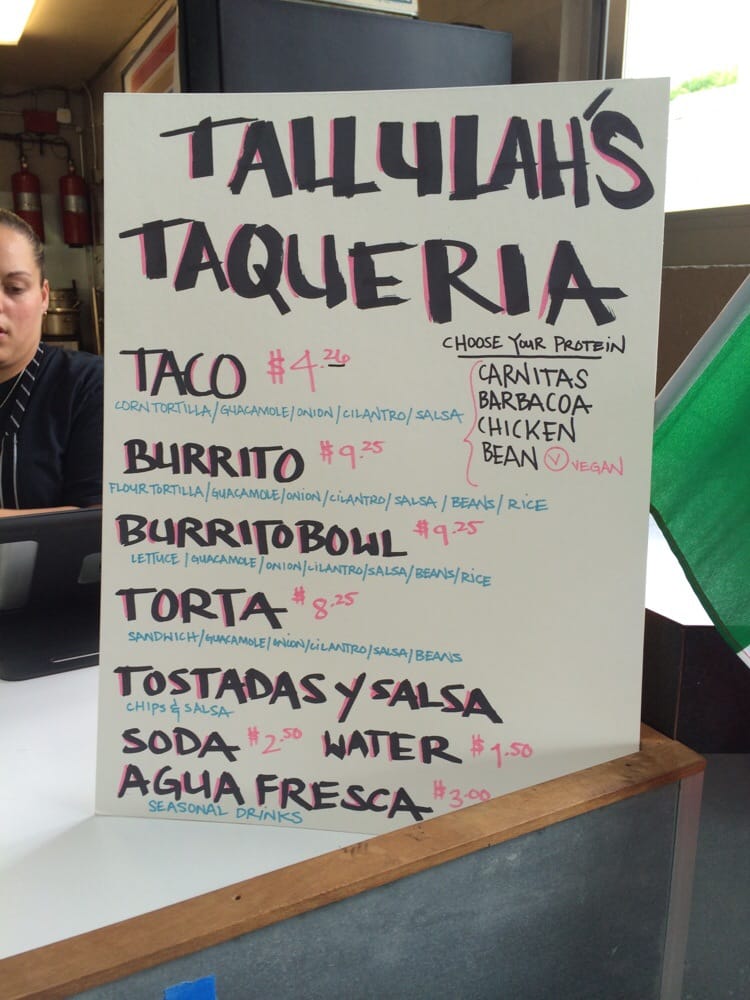 TALLULAH'S
TAQUERIA
CHOOSE YOUR PROTEIN
CARNITAS
BARBACOA
CHICKEN
BEAN Ⓥ VEGAN
TACO $4.26
CORN TORTILLA/GUACAMOLE/ONION/CILANTRO/SALSA
BURRITO $9.25
FLOUR TORTILLA/GUACAMOLE/ONION/CILANTRO/SALSA/BEANS/RICE
BURRITO BOWL $9.25
LETTUCE/GUACAMOLE/ONION/CILANTRO/SALSA/BEANS/RICE
TORTA $8.25
SANDWICH/GUACAMOLE/ONION/CILANTRO/SALSA/BEANS
TOSTADAS Y SALSA
CHIPS & SALSA
SODA $2.50 WATER $1.50
AGUA FRESCA $3.00
SEASONAL DRINKS